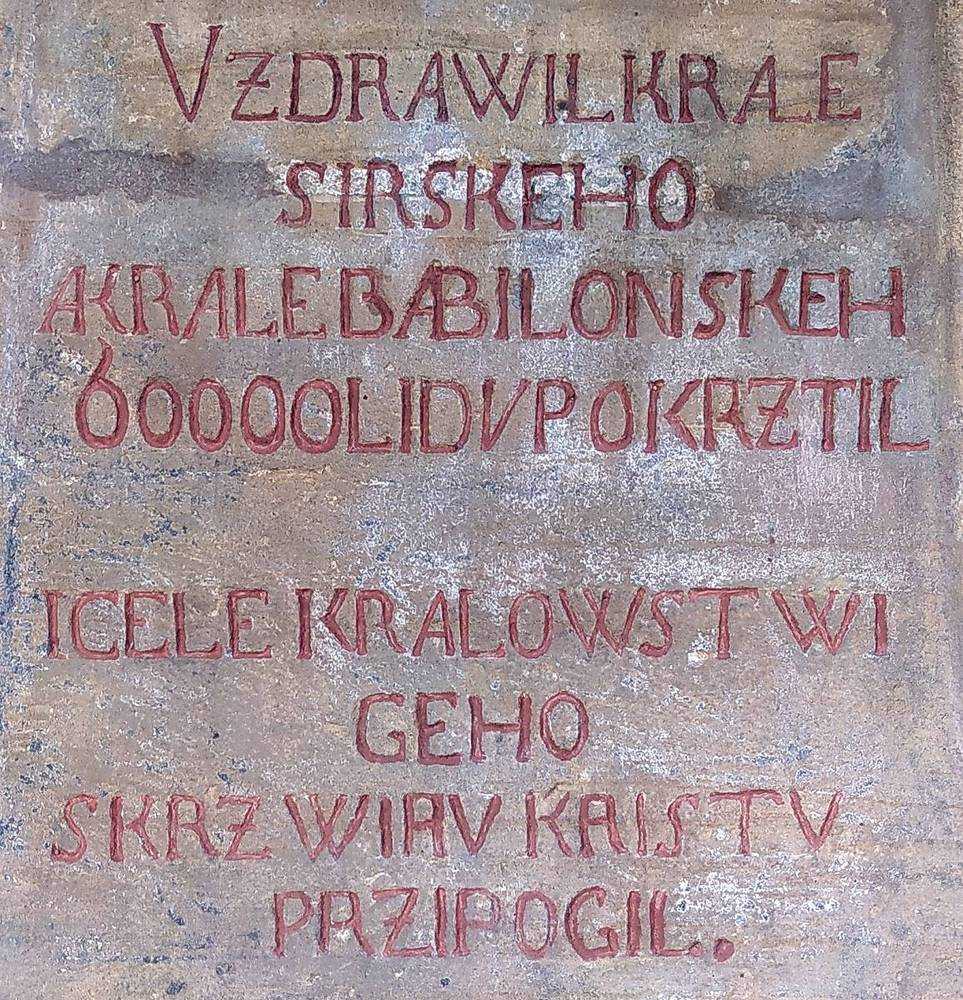 VZDRAWIL KRALE
SIRSKEHO
A KRALE BABILONSKEH
60000 LIDV POKRZTIL
I CELE KRALOWSTWI
GEHO
SKRZ WIRV KRISTV
PRZIPOGIL..